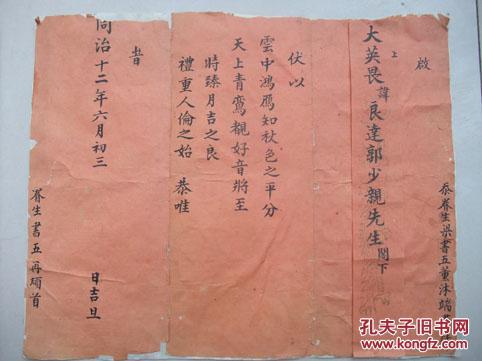 啟
上
大英畏諱良達郭少親先生閣下
伏以
雲中鴻雁知秋色之平分
天上青鸞觀好音將至
時臻月吉之良
禮重人倫之始 恭唯
昔
同治十二年六月初三
日吉旦
眷生書五再頓首
孔夫子旧书网
www.kongfz.com